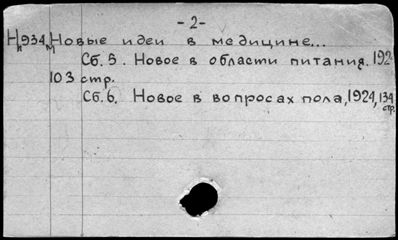 -2-
Нк934м Новые идеи в медицине...
Сб. 5. Новое в области питания. 192
103 стр.
Сб. 6. Новое в вопросах пола, 1924, 134 стр.